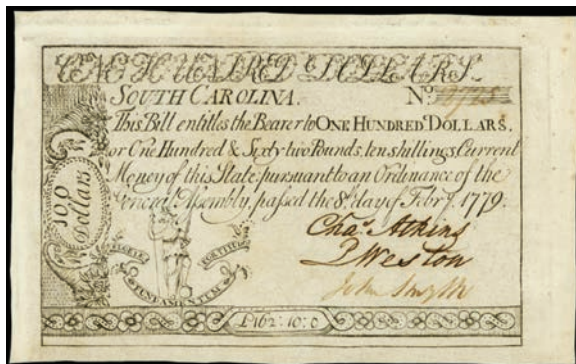 ONE HUNDRED DOLLARS.
SOUTH CAROLINA. No.
This Bill entitles the Bearer to ONE HUNDRED DOLLARS,
or One Hundred & Sixty-two Pounds, ten shillings, Current
Money of this State, pursuant to an Ordinance of the
General Assembly, passed the 8th. day of Febry. 1779.
100
Dollars
Chas. Atkins
P Weston
John Smyth
FORTITUDE
FUNDAMENTUM
£162:10:0